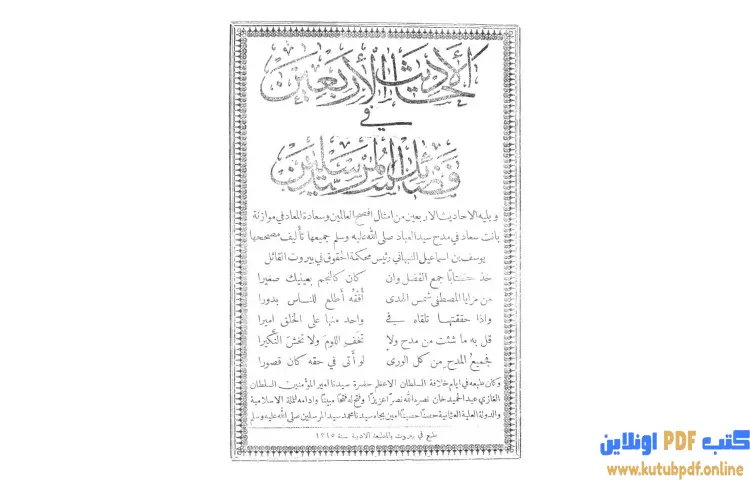 الأحاديث الأربعين
في
فضائل سيد المرسلين
ويليه الاحاديث الاربعين من امثال افصح العالمين وسعادة المعاد في موازنة
بانت سعاد في مدح سيد العباد صلى الله عليه وسلم جميعها تأليف مصححها
يوسف بن اسماعيل النبهاني رئيس محكمة الحقوق في بيروت القائل
خذ كتابًا جمع الفضل وان كان كالنجم بعينيك صغيرا
من مزايا المصطفى شمس الهدى أفقه أطلع للناس بدورا
واذا حققتها تلقاه في واحد منها على الخلق اميرا
قل به ما شئت من مدح ولا تخفِ اللومَ ولا تخشَ النَّكيرا
فجميع المدح من كل الورى لو أتى في حقه كان قصورا
وكان طبعه في ايام خلافة السلطان الاعظم حضرة سيدنا امير المؤمنين السلطان
الغازي عبد الحميد خان نصره الله نصرًا عزيزًا وفتح له فتحًا مبينًا وادامه للملة الاسلامية
والدولة العلية العثمانية حصنًا حصينًا امين بجاه سيدنا محمد سيد المرسلين صلى الله عليه وسلم
طبع في بيروت بالمطبعة الادبية سنة ١٣١٥
كتب PDF اونلاين
www.kutubpdf.online